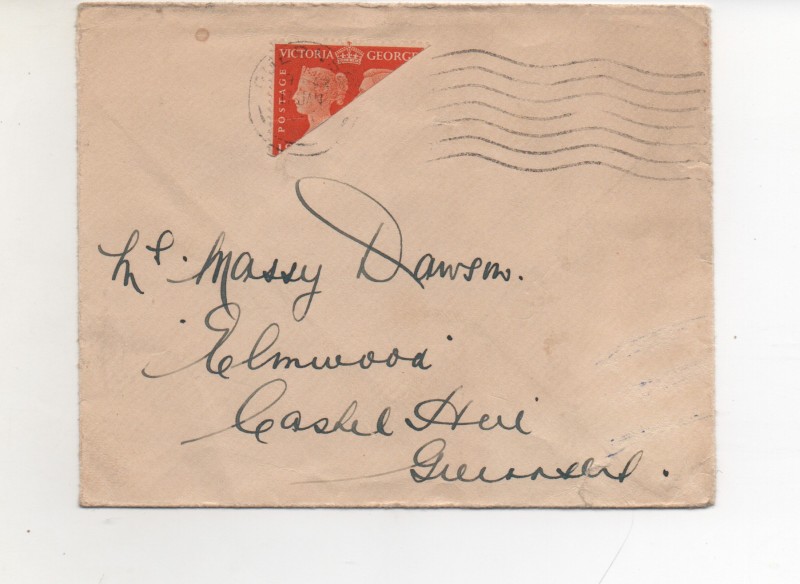 VICTORIA GEORGE
POSTAGE
Mr. Massy Dawson.
Elmwood
Castel Hill
Guernsey.